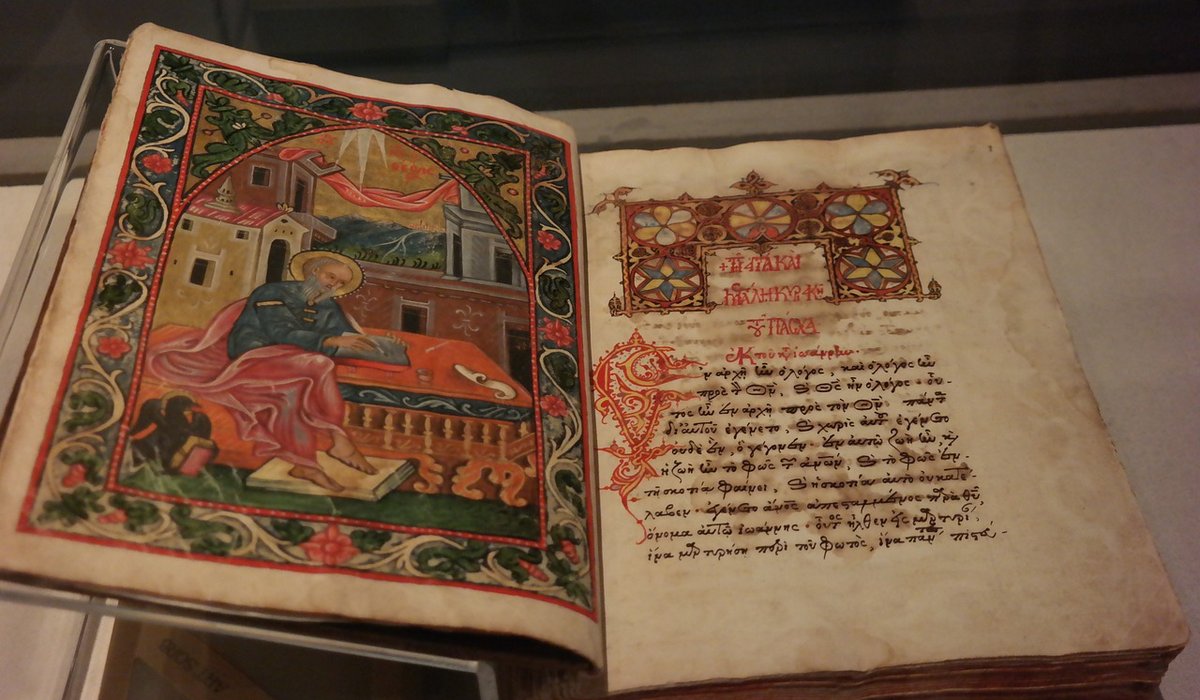 +ΤΗ ΑΓΙΑ ΚΑΙ
ΜΕΓΑΛΗ ΚΥΡΙΑΚΗ
ΤΟΥ ΠΑΣΧΑ
Ἐκ τοῦ κ Ἰωάννην.
Ἐν ἀρχῇ ἦν ὁ λόγος, καὶ ὁ λόγος ἦν
πρὸς τ Θν, ϗ Θς ἦν ὁ λόγος. οὗ-
τος ἦν ἐν ἀρχῇ πρὸς τὸν Θν. πάντ
δι' αὐτοῦ ἐγένετο, ϗ χωρὶς αὐτ ἐγένετο
οὐδὲ ἕν, ὃ γέγονεν. ἐν αὐτῷ ζωὴ ἦν, ϗ
ἡ ζωὴ ἦν τὸ φῶς τ ἀνων, ϗ τὸ φῶς ἐν
τῇ σκοτίᾳ φαίνει, ϗ ἡ σκοτία αὐτὸ οὐ κατέ-
λαβεν. ἐγένετο ἄνος ἀπεσταλμένος παρὰ Θυ,
ὄνομα αὐτῷ Ἰωάννης. οὗτος ἦλθεν εἰς μρτυρί,
ἵνα μρτυρήσῃ περὶ τοῦ φωτὸς, ἵνα πάντ πιστεύ-